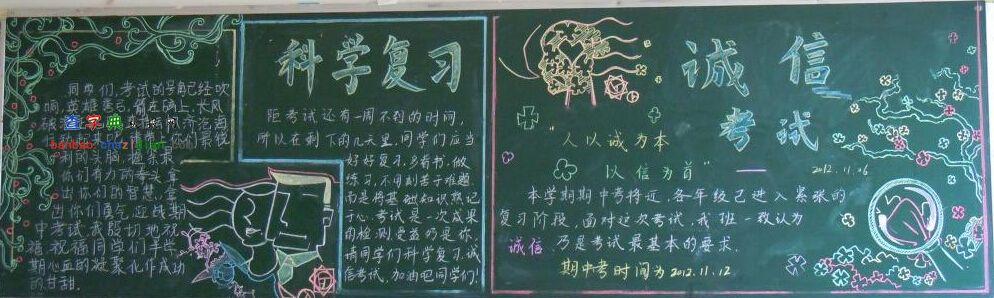 同学们,考试的号角已经吹
响,英雄莫
查字典
banbao.chazidian
们最
利的头脑
你们有力的
出你们的智慧,拿
出你们勇气,迎战期
中考试我殷切地祝
福,祝福同学们半学
期心血的凝聚化作成功
的甘甜.
科学复习
距考试还有一周不到的时间,
所以在剩下的几天里,同学们应当
好好复习.多看书,做
练习,不用刻苦于难题.
而是将基础知识熟记
于心.考试是一次成果
的检测,受益的是你.
请同学们科学复习,诚
信考试,加油吧同学们!
诚信
考试
"人以诚为本
以信为首"——
2012.11.06
本学期期中考将近,各年级已进入紧张的
复习阶段,面对这次考试,我班一致认为
诚信 乃是考试最基本的要求.
期中考时间为2012.11.12